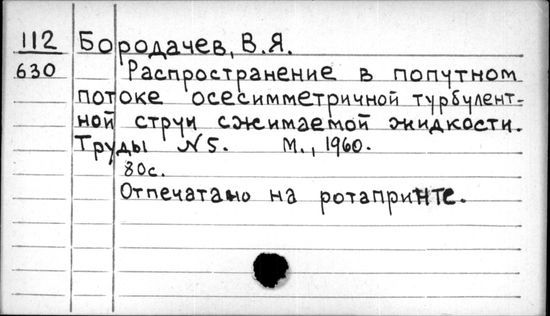 112 Бородачев, В.Я.
630 Распространение в попутном
потоке осесимметричной турбулент-
ной струи сжимаемой жидкости.
Труды N5. М., 1960.
80с.
Отпечатано на ротапринте.